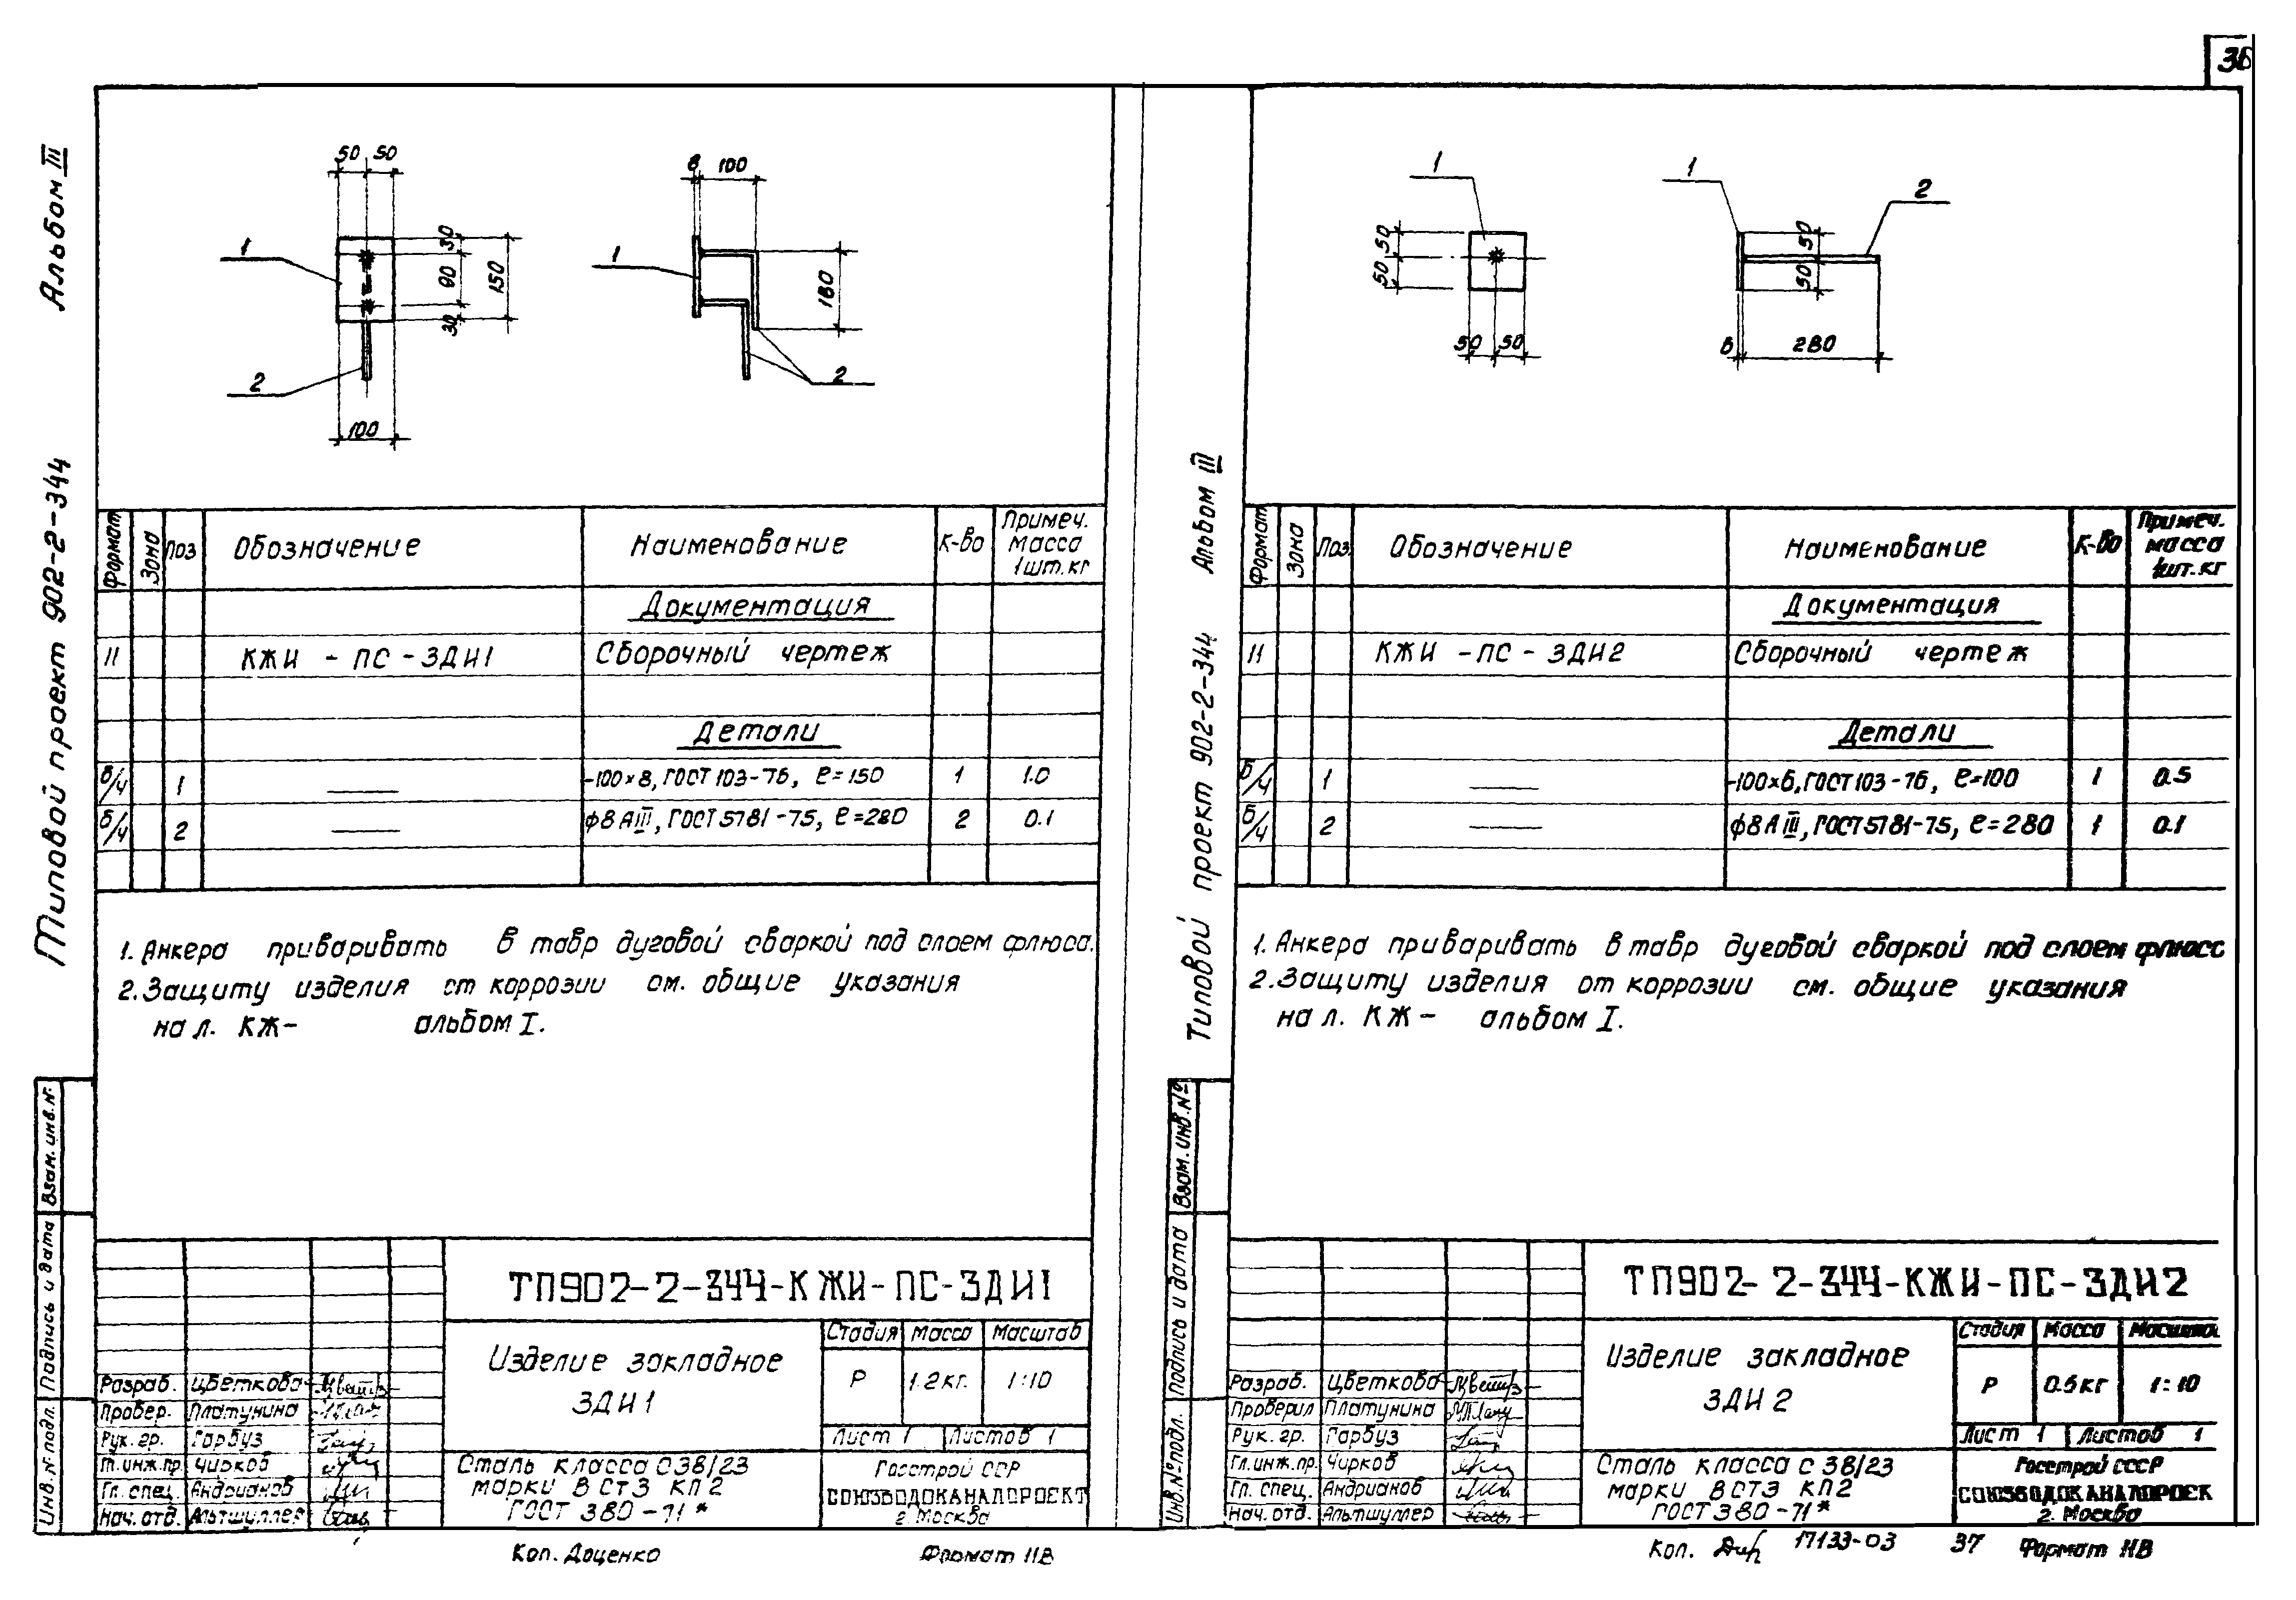 36
Альбом III
Типовой проект 902-2-344
50 50
8 100
1
2
30
90
30
150
100
1
180
2
Формат Зона Поз Обозначение Наименование К-во Примеч. масса 1шт. кг
Документация
11 КЖИ - ПС - ЗДИ1 Сборочный чертеж
Детали
б/ч 1 —— -100×8, ГОСТ 103-76, ℓ=150 1 1.0
б/ч 2 —— ф8 АIII, ГОСТ 5781-75, ℓ=280 2 0.1
1. Анкера приваривать в тавр дуговой сваркой под слоем флюса.
2. Защиту изделия от коррозии см. общие указания
на л. КЖ- альбом I.
Взам. инв. №
Подпись и дата
Инв. № подл.
ТП902-2-344-КЖИ-ПС-ЗДИ1
Изделие закладное
ЗДИ1
Стадия Масса Масштаб
Р 1.2кг. 1:10
Лист 1 Листов 1
Разраб. Цветкова
Провер. Платунина
Рук. гр. Гарбуз
Гл. инж. пр. Чирков
Гл. спец. Андрианов
Нач. отд. Альтшуллер
Сталь класса С38/23
марки ВСТ3 КП2
ГОСТ 380-71*
Госстрой СССР
СОЮЗВОДОКАНАЛПРОЕКТ
г. Москва
Коп. Доценко Формат 11В
Типовой проект 902-2-344 Альбом III
1
50
50
50 50
1
2
50
50
6 280
Формат Зона Поз. Обозначение Наименование К-во Примеч. масса 1шт. кг
Документация
11 КЖИ - ПС - ЗДИ2 Сборочный чертеж
Детали
б/ч 1 —— -100×6, ГОСТ 103-76, ℓ=100 1 0.5
б/ч 2 —— ф8 АIII, ГОСТ 5781-75, ℓ=280 1 0.1
1. Анкера приваривать в тавр дуговой сваркой под слоем флюсс
2. Защиту изделия от коррозии см. общие указания
на л. КЖ- альбом I.
Взам. инв. №
Подпись и дата
Инв. № подл.
ТП902-2-344-КЖИ-ПС-ЗДИ2
Изделие закладное
ЗДИ2
Стадия Масса Масштаб
Р 0.6кг 1:10
Лист 1 Листов 1
Разраб. Цветкова
Проверил Платунина
Рук. гр. Гарбуз
Гл. инж. пр. Чирков
Гл. спец. Андрианов
Нач. отд. Альтшуллер
Сталь класса С38/23
марки ВСТ3 КП2
ГОСТ 380-71*
Госстрой СССР
СОЮЗВОДОКАНАЛПРОЕК
г. Москва
Коп. 17133-03 37 Формат 11В